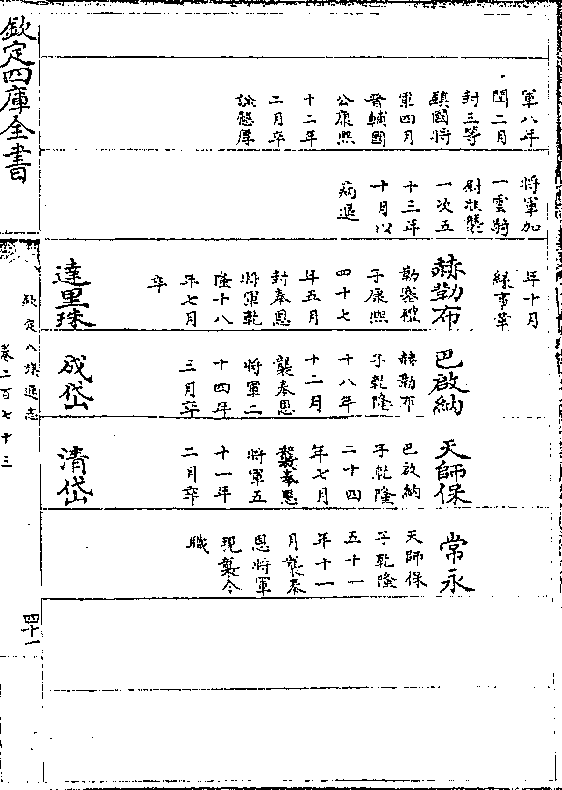 欽定四庫全書
軍八年
閏二月
封三等
鎮國將
軍四月
晉輔國
公康熙
十二年
二月卒
諡懿厚
將軍加
一雲騎
尉准襲
一次五
十三年
十月以
病退
年十月
緣事革
赫勒布
勒塞禮
子康熙
四十七
年五月
封奉恩
將軍乾
隆十八
年七月
卒
達里珠
巴啟納
赫勒布
子乾隆
十八年
十二月
襲奉恩
將軍二
十四年
三月卒
成岱
天師保
巴啟納
子乾隆
二十四
年七月
襲奉恩
將軍五
十一年
二月卒
清岱
常永
天師保
子乾隆
五十一
年十一
月襲奉
恩將軍
現襲今
職
欽定八旗通志
卷二百七十三
四十一